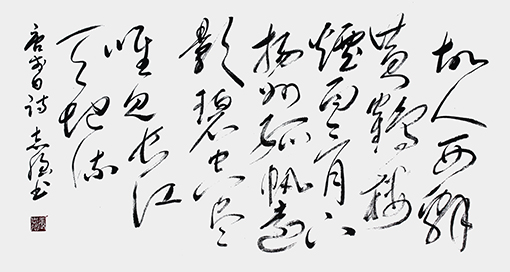 故人西辭
黄鶴楼
煙雨三月下
揚州孤帆遠
影碧空尽
唯見長江
天地流
唐李白詩 志书